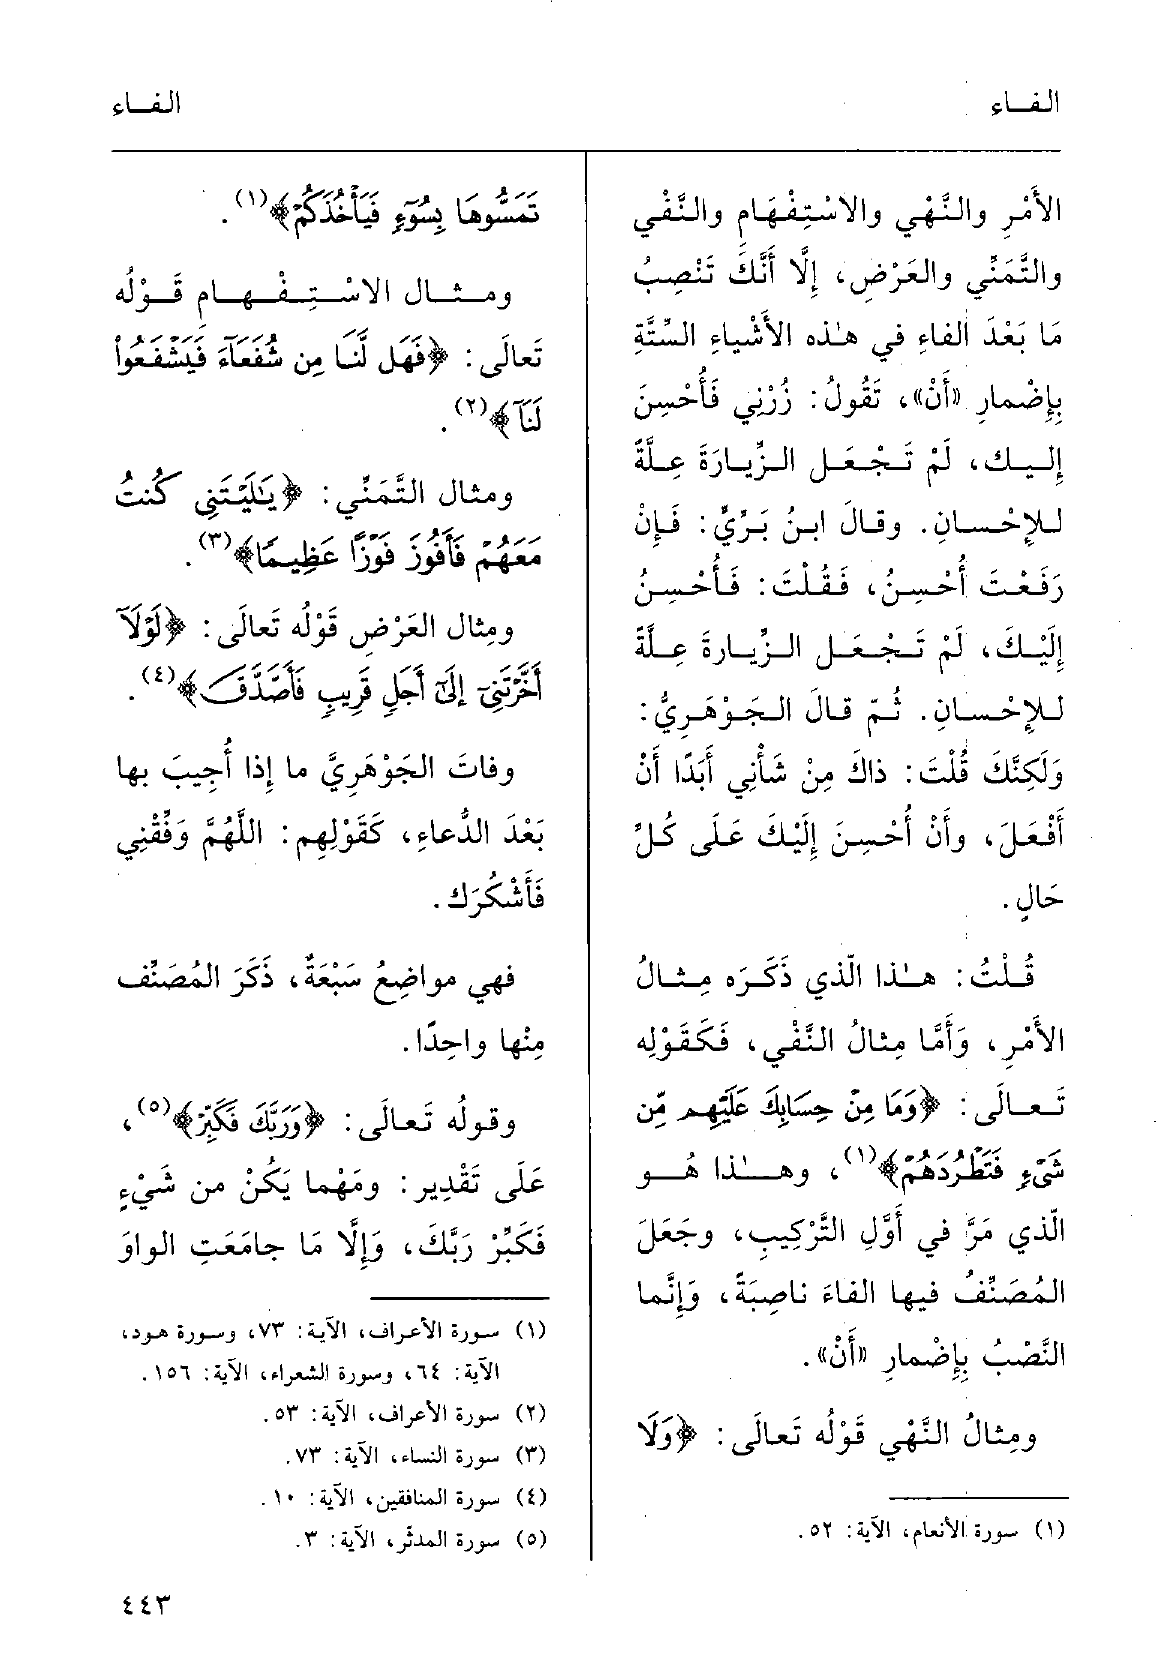 الفـاء
الفـاء
الأَمْرِ والنَّهْيِ والاسْتِفْهَامِ والنَّفْيِ
والتَّمَنِّي والعَرْضِ، إِلَّا أَنَّكَ تَنْصِبُ
مَا بَعْدَ الفاءِ في هٰذه الأَشْياءِ السِّتَّةِ
بِإِضْمارِ «أَنْ»، تَقُولُ: زُرْنِي فَأُحْسِنَ
إِلـيـك، لَمْ تَـجْـعَـلِ الـزِّيـارَةَ عِـلَّةً
لـلإِحْـسـانِ. وقـالَ ابـنُ بَـرِّيٍّ: فَـإِنْ
رَفَـعْـتَ أُحْـسِـنُ، فَـقُـلْتَ: فَـأُحْـسِـنُ
إِلَيْـكَ، لَمْ تَـجْـعَـلِ الـزِّيـارَةَ عِـلَّةً
لـلإِحْـسـانِ. ثُـمّ قـالَ الـجَـوْهَـرِيُّ:
وَلَكِنَّكَ قُلْتَ: ذاكَ مِنْ شَأْنِي أَبَدًا أَنْ
أَفْـعَـلَ، وأَنْ أُحْـسِـنَ إِلَيْـكَ عَـلَى كُـلِّ
حَالٍ.
قُـلْـتُ: هـٰـذا الّذي ذَكَـرَه مِـثـالُ
الأَمْـرِ، وَأَمَّا مِثالُ النَّفْيِ، فَكَقَوْلِه
تَـعـالَى: ﴿وَمَا مِنْ حِسَابِكَ عَلَيْهِم مِّن
شَىْءٍ فَتَطْرُدَهُمْ﴾(١)، وهـٰـذا هُـو
الّذي مَرَّ في أَوَّلِ التَّرْكِيبِ، وجَعَلَ
المُصَنِّفُ فيها الفاءَ ناصِبَةً، وَإِنَّما
النَّصْبُ بِإِضْمارِ «أَنْ».
ومِثالُ النَّهْيِ قَوْلُه تَعالَى: ﴿وَلَا
(١) سورة الأنعام، الآية: ٥٢.
تَمَسُّوهَا بِسُوٓءٍ فَيَأْخُذَكُمْ﴾(١).
ومـثـال الاسْـتِـفْـهـام قَـوْلُه
تَعالَى: ﴿فَهَل لَّنَا مِن شُفَعَآءَ فَيَشْفَعُوا۟
لَنَآ﴾(٢).
ومثال التَّمَنِّي: ﴿يَٰلَيْتَنِى كُنتُ
مَعَهُمْ فَأَفُوزَ فَوْزًا عَظِيمًا﴾(٣).
ومِثال العَرْضِ قَوْلُه تَعالَى: ﴿لَوْلَآ
أَخَّرْتَنِىٓ إِلَىٰٓ أَجَلٍ قَرِيبٍ فَأَصَّدَّقَ﴾(٤).
وفاتَ الجَوْهَرِيَّ ما إذا أُجِيبَ بها
بَعْدَ الدُّعاءِ، كَقَوْلِهِم: اللَّهُمَّ وَفِّقْنِي
فَأَشْكُرَك.
فهي مواضِعُ سَبْعَةٌ، ذَكَرَ المُصَنِّف
مِنْها واحِدًا.
وقـولُه تَـعـالَى: ﴿وَرَبَّكَ فَكَبِّرْ﴾(٥)،
عَلَى تَقْدِير: ومَهْما يَكُنْ من شَيْءٍ
فَكَبِّرْ رَبَّكَ، وَإِلَّا مَا جامَعَتِ الواوَ
(١) سورة الأعراف، الآية: ٧٣، وسورة هود،
الآية: ٦٤، وسورة الشعراء، الآية: ١٥٦.
(٢) سورة الأعراف، الآية: ٥٣.
(٣) سورة النساء، الآية: ٧٣.
(٤) سورة المنافقين، الآية: ١٠.
(٥) سورة المدثّر، الآية: ٣.
٤٤٣